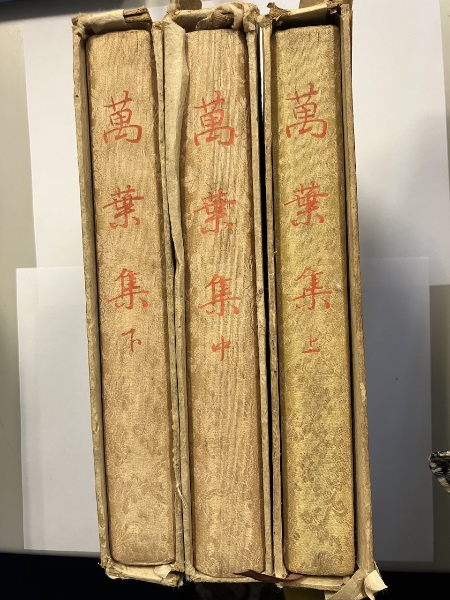 萬葉集上
萬葉集中
萬葉集下